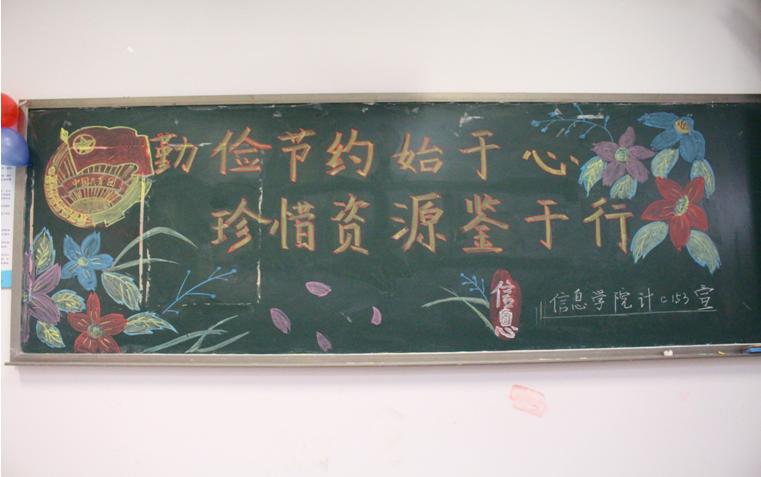 勤俭节约始于心
珍惜资源鉴于行
中国共青团
信息
信息学院计c153宣